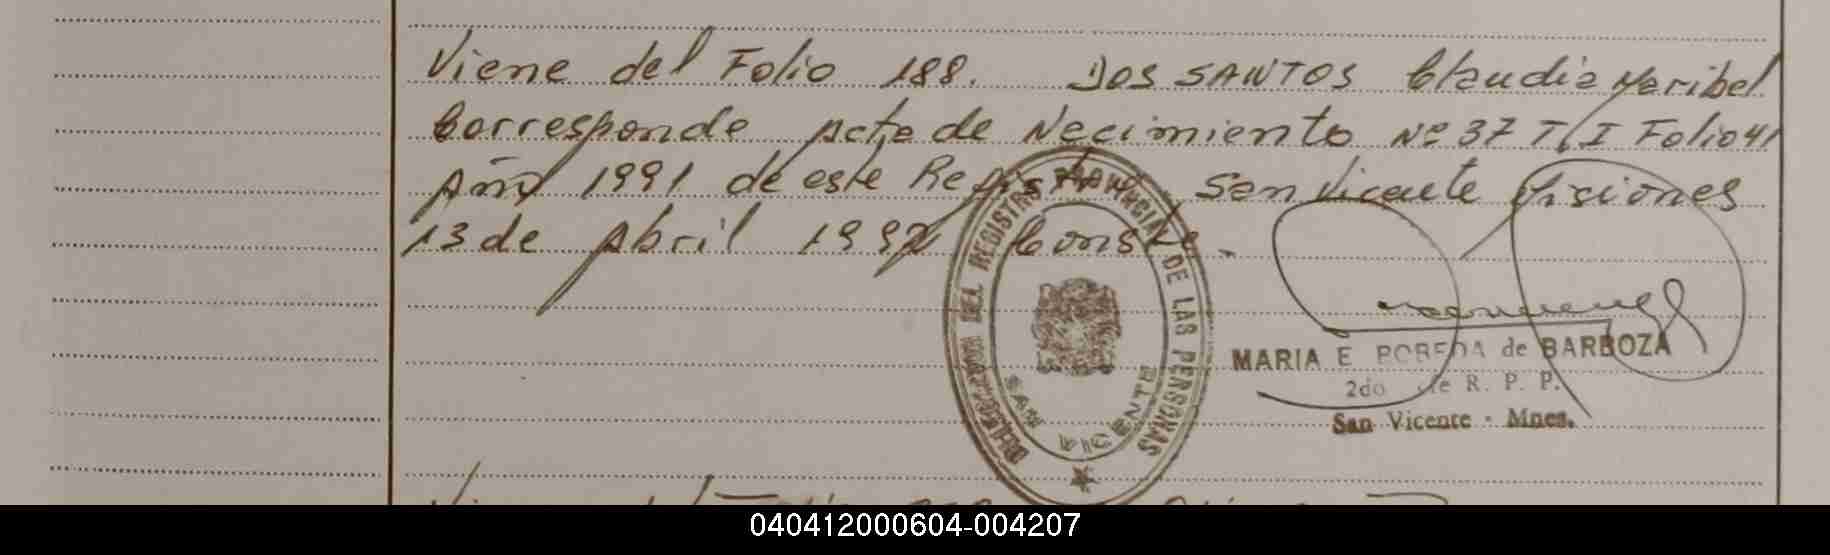 Viene del Folio 188. DOS SANTOS Claudia Maribel
Corresponde Acta de Nacimiento Nº 37 T/I Folio 41
Año 1991 de este Registro. San Vicente Misiones
13 de Abril 1992 Conste.-
DEL REGISTRO PROVINCIAL DE LAS PERSONAS
SAN VICENTE
MARIA E POBEDA de BARBOZA
2do de R. P. P.
San Vicente - Mnes.
040412000604-004207